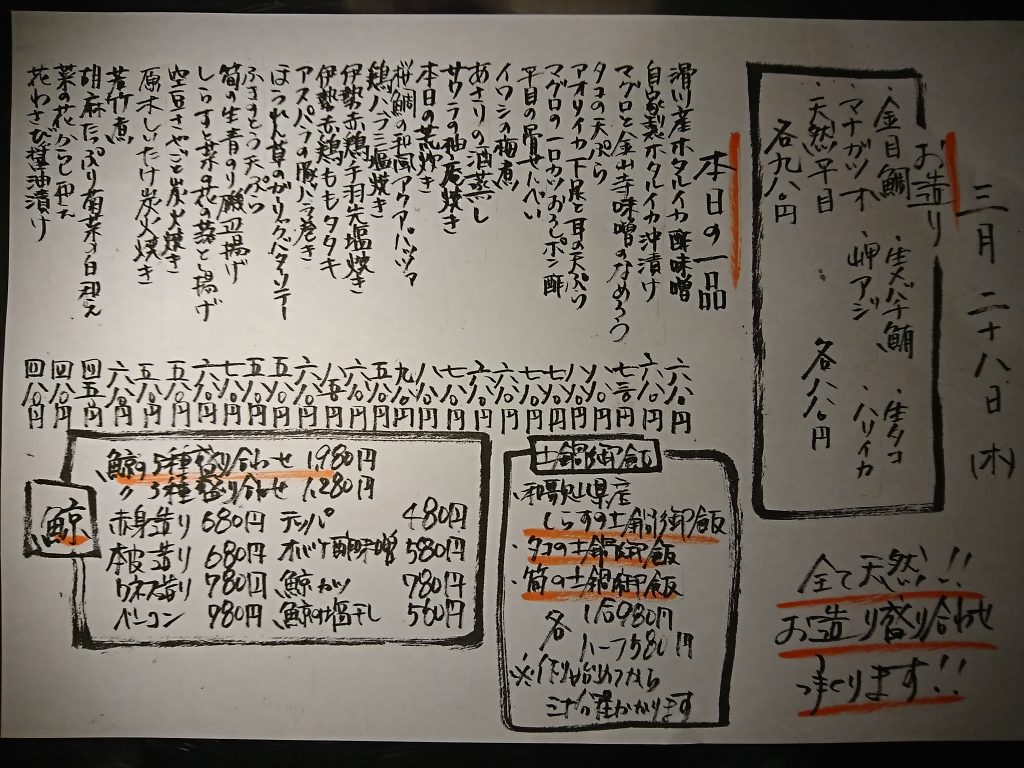 三月二十八日(木)
お造り
・金目鯛 ・生メバチ鮪 ・生タコ
・マナガツオ ・岬アジ ・ハリイカ
・天然平目 各八八〇円
各九八〇円
全て天然!!
お造り盛り合わせ
つくります!!
本日の一品
滑川産ホタルイカ酢味噌 六八〇円
自家製ホタルイカ沖漬け 六八〇円
マグロと金山寺味噌のなめろう 七三〇円
タコの天ぷら 六八〇円
アオリイカ下足と耳の天ぷら
マグロの一口カツおろしポン酢
平目の骨せんべい
イワシの梅煮
あさりの酒蒸し
サワラの柚庵焼き
本日の荒炊き
桜鯛の和風アクアパッツァ 九八〇円
鶏ハラミ塩焼き 五八〇円
伊勢赤鶏手羽先塩焼き 六八〇円
伊勢赤鶏ももタタキ
アスパラの豚バラ巻き 六八〇円
ほうれん草のガーリックバターソテー 五八〇円
ふきのとう天ぷら 五八〇円
筍の生青のり磯辺揚げ 七八〇円
しらすと菜の花の落とし揚げ 六八〇円
空豆さやごと炭火焼き 五八〇円
原木しいたけ炭火焼き 五八〇円
若竹煮 六八〇円
胡麻たっぷり菊菜の白和え 四五〇円
菜の花からし和え 四八〇円
花わさび醤油漬け 四八〇円
土鍋御飯
・和歌山県産
しらすの土鍋御飯
・タコの土鍋御飯
・筍の土鍋御飯
各 1合980円
ハーフ580円
※作り始めてから
三十分程かかります
鯨
鯨の5種盛り合わせ 1,980円
〃 3種盛り合わせ 1,280円
赤身造り 680円 テッパ 480円
本皮造り 680円 オバケ酢味噌 580円
ウネス造り 780円 鯨カツ 780円
ベーコン 980円 鯨の塩干し 560円